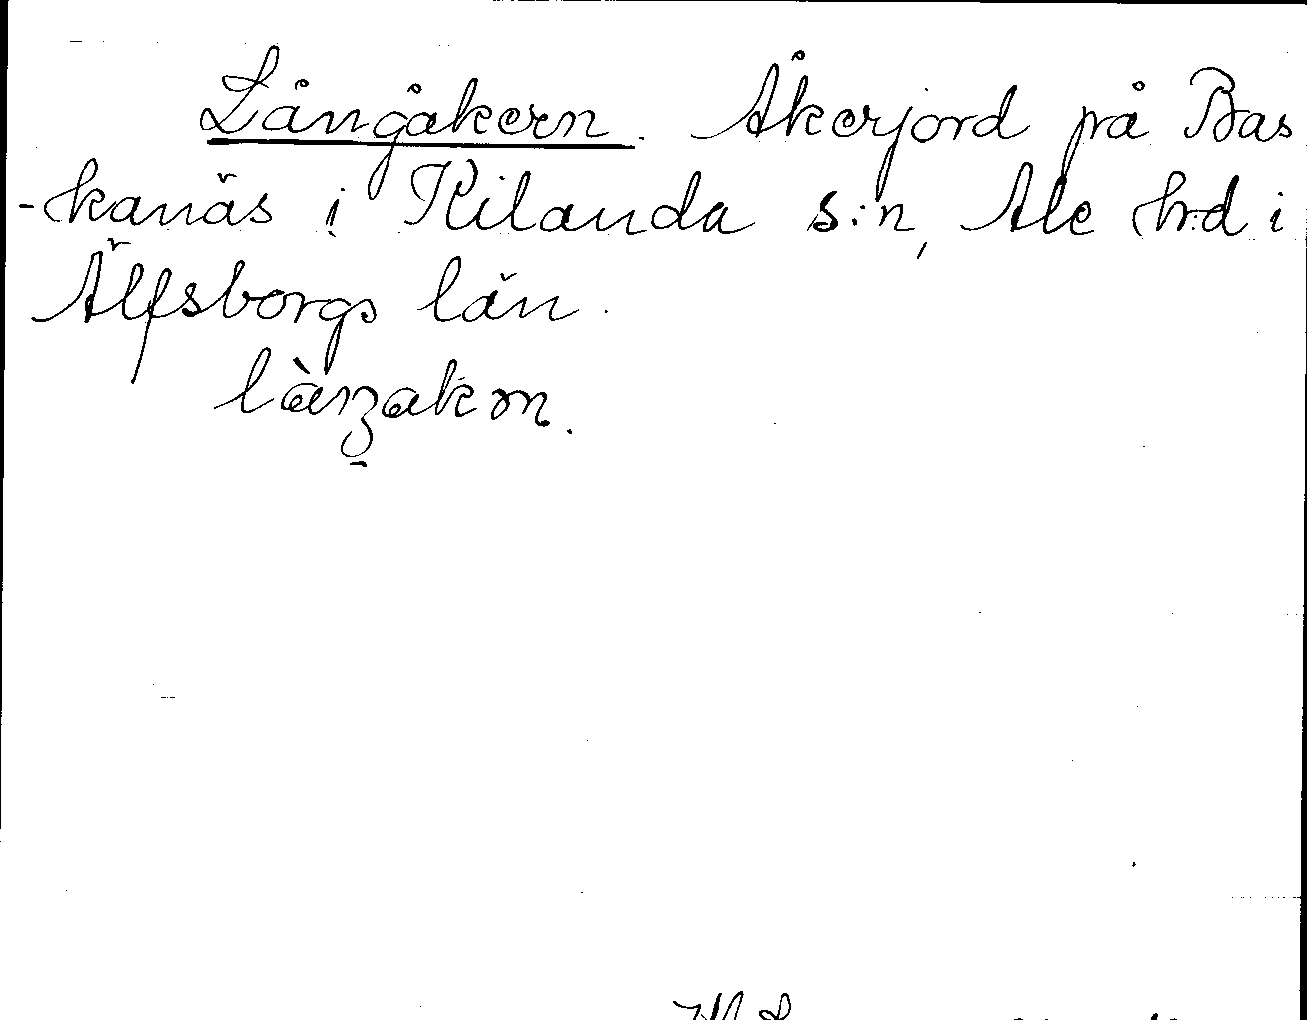 Långåkern. Åkerjord på Bas
-kanäs i Kilanda s:n, Ale h:d i
Älfsborgs län.